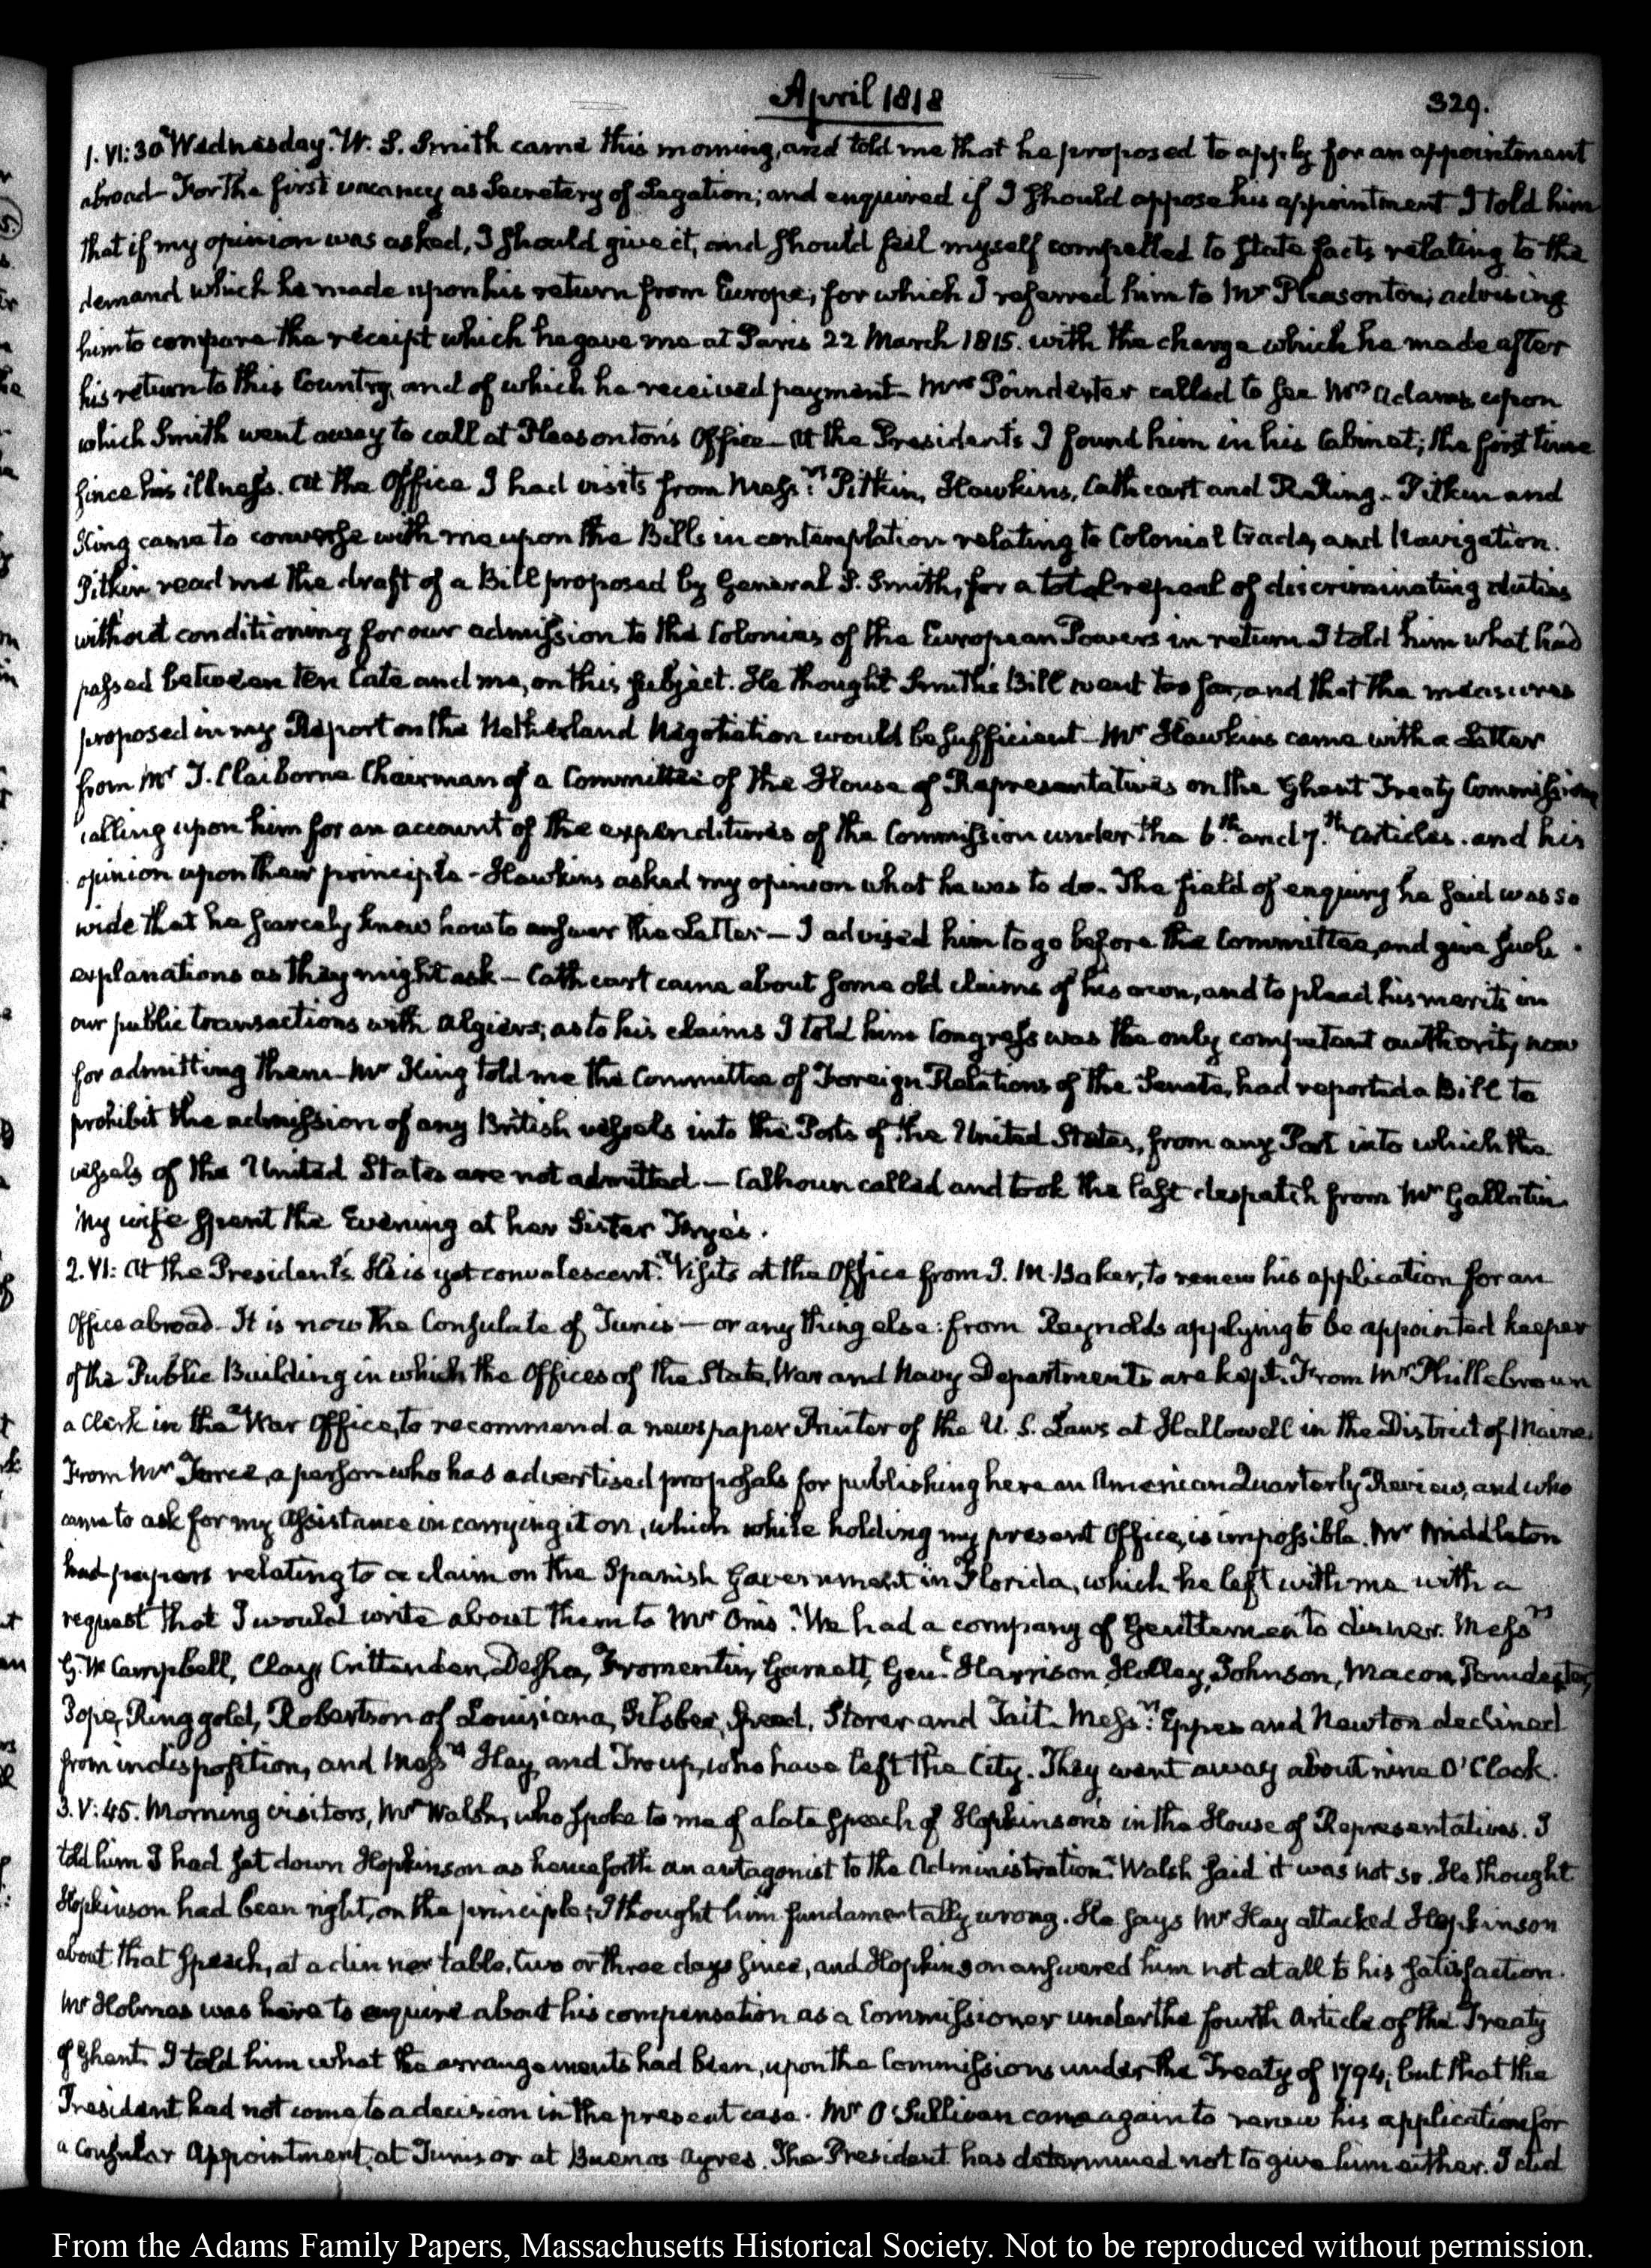 April 1818
329.
1. VI:30 Wednesday. W. S. Smith came this morning, and told me that he proposed to apply for an appointment
abroad For the first vacancy as Secretary of Legation; and enquired if I should oppose his appointment I told him
that if my opinion was asked, I should give it, and should feel myself compelled to state facts relating to the
demand which he made upon his return from Europe; for which I referred him to Mr Pleasonton; advising
him to compare the receipt which he gave me at Paris 22 March 1815. with the charge which he made after
his return to this Country, and of which he received payment- Mrs Poindexter called to see Mrs Adams, upon
which Smith went away to call at Pleasonton's Office- At the President's I found him in his Cabinet; the first time
since his illness. At the Office I had visits from Messrs Pitkin, Hawkins, Cathcart and R. King. Pitkin and
King came to converse with me upon the Bills in contemplation relating to Colonial trade, and Navigation.
Pitkin read me the draft of a Bill proposed by General S. Smith, for a total repeal of discriminating duties
without conditioning for our admission to the Colonies of the European Powers in return I told him what had
passed between ten Cate and me, on this subject. He thought Smith's Bill went too far, and that the measures
proposed in my Report on the Netherland Negotiation would be sufficient- Mr Hawkins came with a Letter
from Mr T. Claiborne Chairman of a Committee of the House of Representatives on the Ghent Treaty Commissions
calling upon him for an account of the expenditures of the Commission under the 6th and 7.th Articles. and his
opinion upon their principle- Hawkins asked my opinion what he was to do. The field of enquiry he said was so
wide that he scarcely knew how to answer the Letter- I advised him to go before the Committee, and give such
explanations as they might ask- Cathcart came about some old claims of his own, and to plead his merits in
our public transactions with Algiers; as to his claims I told him Congress was the only competent authority now
for admitting them- Mr King told me the Committee of Foreign Relations of the Senate, had reported a Bill to
prohibit the admission of any British vessels into the Ports of the United States, from any Port into which the
vessels of the United States are not admitted- Calhoun called and took the last despatch from Mr Gallatin
My wife spent the Evening at her Sister Frye's.
2. VI: At the President's. He is yet convalescent. Visits at the Office from J. M. Baker, to renew his application for an
Office abroad- It is now the Consulate of Tunis- or any thing else: from Reynolds applying to be appointed keeper
of the Public Building in which the Offices of the State, War and Navy Departments are kept. From Mr Phillebrown
a Clerk in the War Office, to recommend a newspaper Printer of the U. S. Laws at Hallowell in the District of Maine.
From Mr Force, a person who has advertised proposals for publishing here an American Quarterly Review, and who
came to ask for my assistance in carrying it on, which while holding my present Office, is impossible. Mr Middleton
had papers relating to a claim on the Spanish Government in Florida, which he left with me with a
request that I would write about them to Mr Onis. We had a company of Gentlemen to dinner. Messrs
G. W. Campbell, Clay, Crittenden, Desha, Fromentin, Garnett, Genl Harrison, Holley, Johnson, Macon, Poindexter,
Pope, Ringgold, Robertson of Louisiana, Silsbee, Speed, Storer and Tait. Messrs Eppes and Newton declined
from indisposition, and Messrs Hay, and Troup, who have left the City. They went away about nine O'Clock.
3. V:45. Morning visitors, Mr Walsh, who spoke to me of a late speech of Hopkinson's in the House of Representatives. I
told him I had set down Hopkinson as henceforth an antagonist to the Administration. Walsh said it was not so. He thought
Hopkinson had been right, on the principle; I thought him fundamentally wrong. He says Mr Hay attacked Hopkinson
about that speech, at a dinner table, two or three days since, and Hopkinson answered him not at all to his satisfaction.
Mr Holmes was here to enquire about his compensation as a Commissioner under the fourth Article of the Treaty
of Ghent. I told him what the arrangements had been, upon the Commissions under the Treaty of 1794; but that the
President had not come to a decision in the present case. Mr O'Sullivan came again to renew his application for
a Consular Appointment, at Tunis or at Buenos Ayres. The President has determined not to give him either. I did
From the Adams Family Papers, Massachusetts Historical Society. Not to be reproduced without permission.